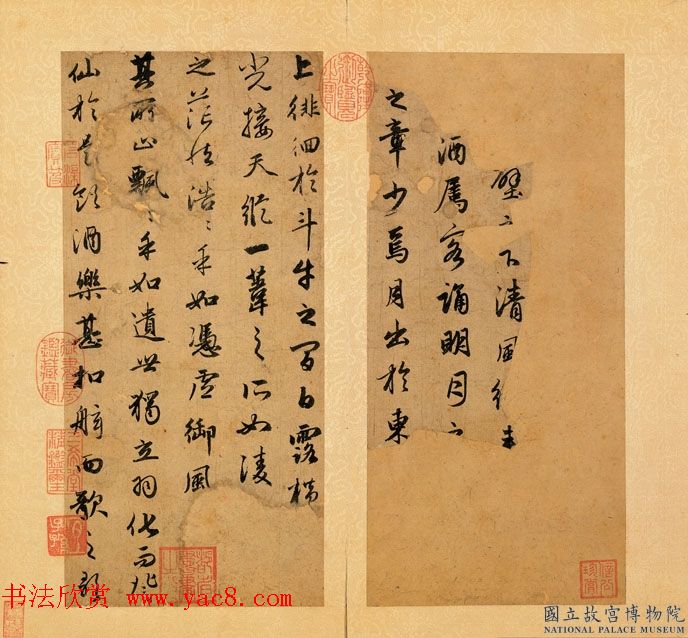 壁之下清風徐来
酒属客誦明月之
之章少焉月出於東
上徘徊於斗牛之間白露横
光接天縱一葦之所如陵
之茫然浩〻乎如憑虛御風
其所止飄〻乎如遺世獨立羽化而登
仙於是飲酒樂甚扣舷而歌之歌
书法欣赏 www.yac8.com
國立故宮博物院
NATIONAL PALACE MUSEUM